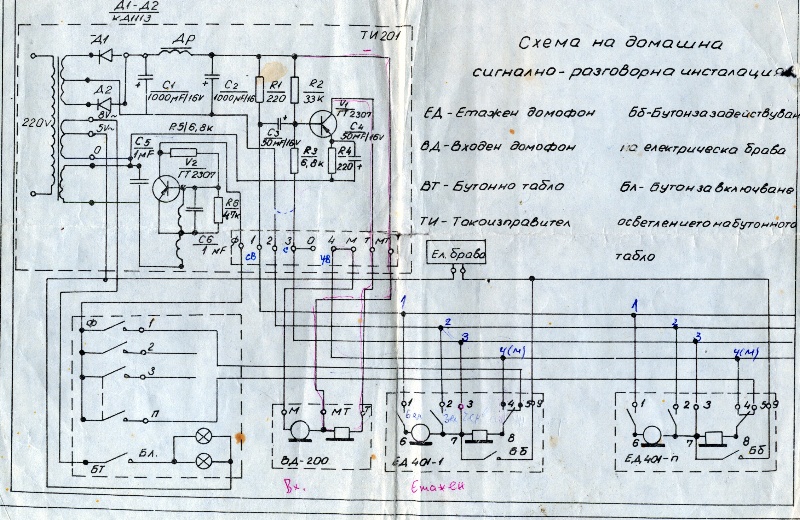 Д1-Д2
КД1113
Схема на домашна
сигнално-разговорна инсталация
ЕД - Етажен домофон
ВД - Входен домофон
ВТ - Бутонно табло
ТИ - Токоизправител
Бб - Бутон за задействуван
на електрическа брава
Бл - Бутон за включване
осветлението на бутонното
табло
ТИ 201
Д1
ДР
Д2
220V
8V~
5V~
0
C1
1000мF/16V
C2
1000мF/16
R1
220
R2
33к
V1
ГТ2307
C3
50мF/16V
C4
50мF/16V
R3
6,8к
R4
220
R5/6,8к
C5
1мF
V2
ГТ2307
R6
47к
C6
1мF
Ф 1 2 3 0 4 М Т МТ
св
с
чв
Ел. брава
1
2
3
4(М)
1
2
3
4(М)
Ф
1
2
3
П
БТ
Бл.
М МТ Т
ВД-200
1 2 3 4 5 9
6 7 8
Бб
ЕД 401-1
1 2 3 4 5 9
6 7 8
Бб
ЕД 401-п
Вх.
Етажен